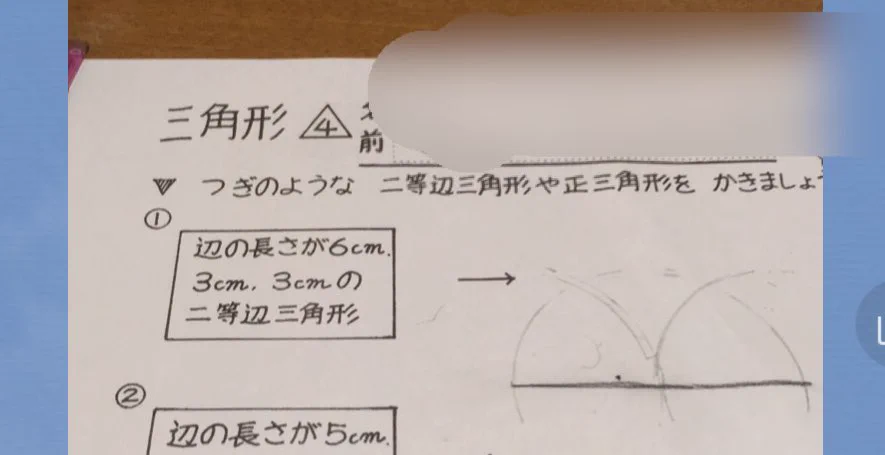 三角形 4
前
つぎのような 二等辺三角形や正三角形を かきましょ
①
辺の長さが6cm.
3cm. 3cmの
二等辺三角形
②
辺の長さが5cm.